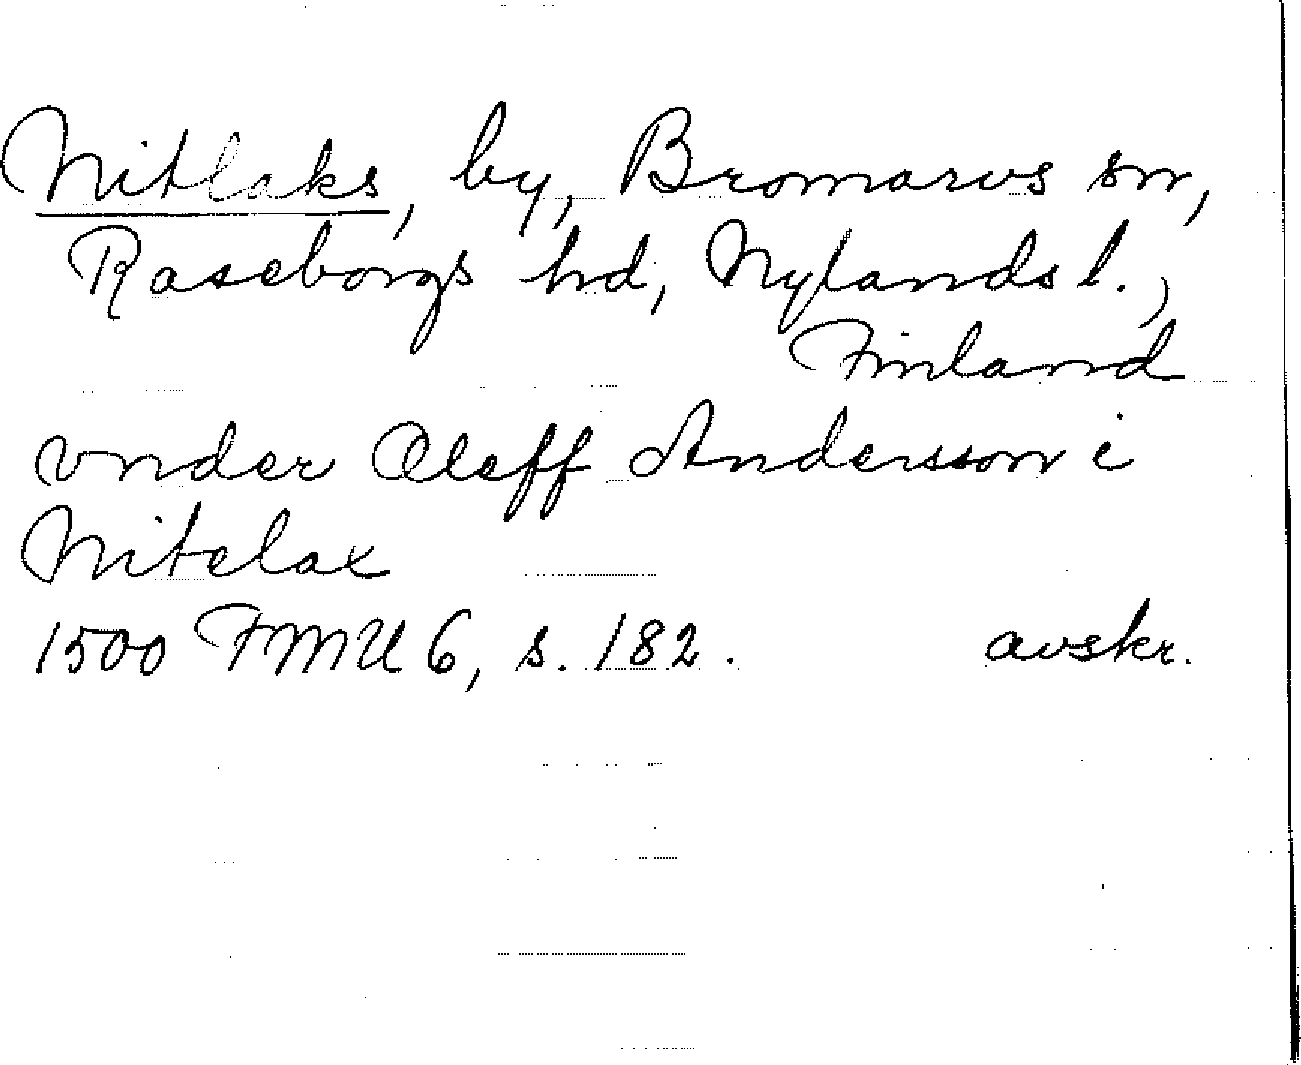 Nitlaks, by, Bromarvs sn,
Raseborgs hd, Nylands l.,
Finland
vnder Oleff Andersson i
Nitelax
1500 FMU 6, s. 182. avskr.